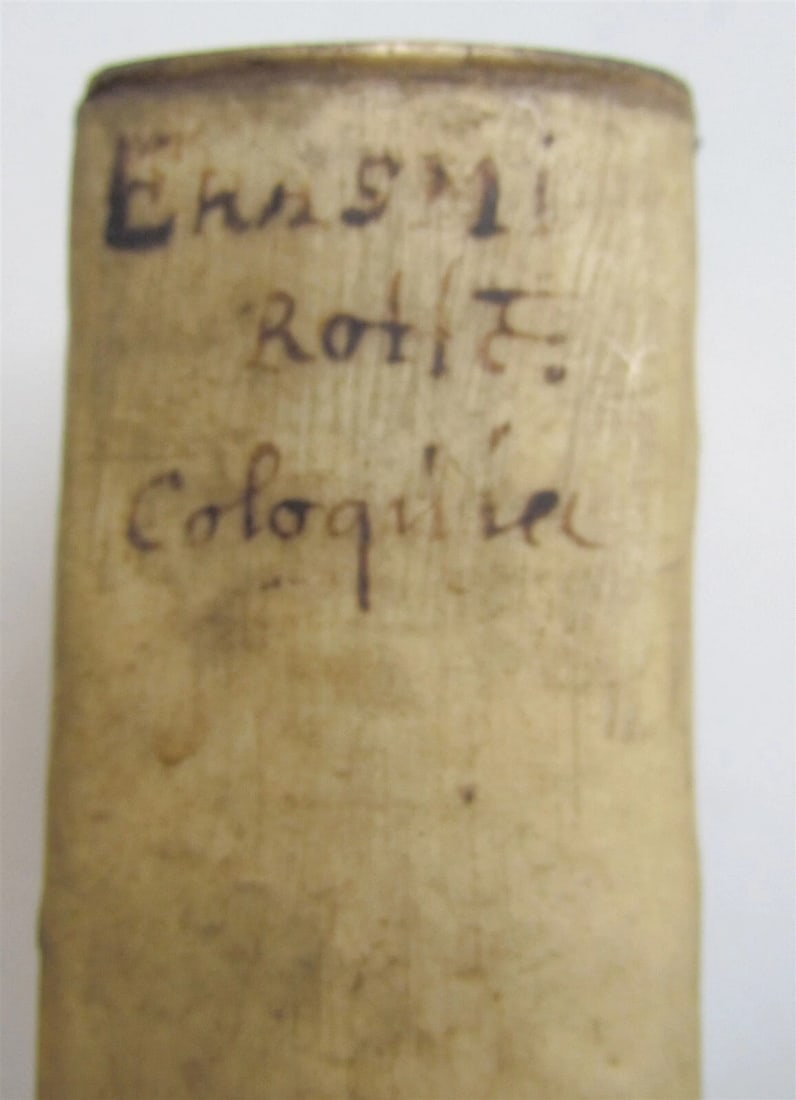 Erasmi
Rott:
Coloquia